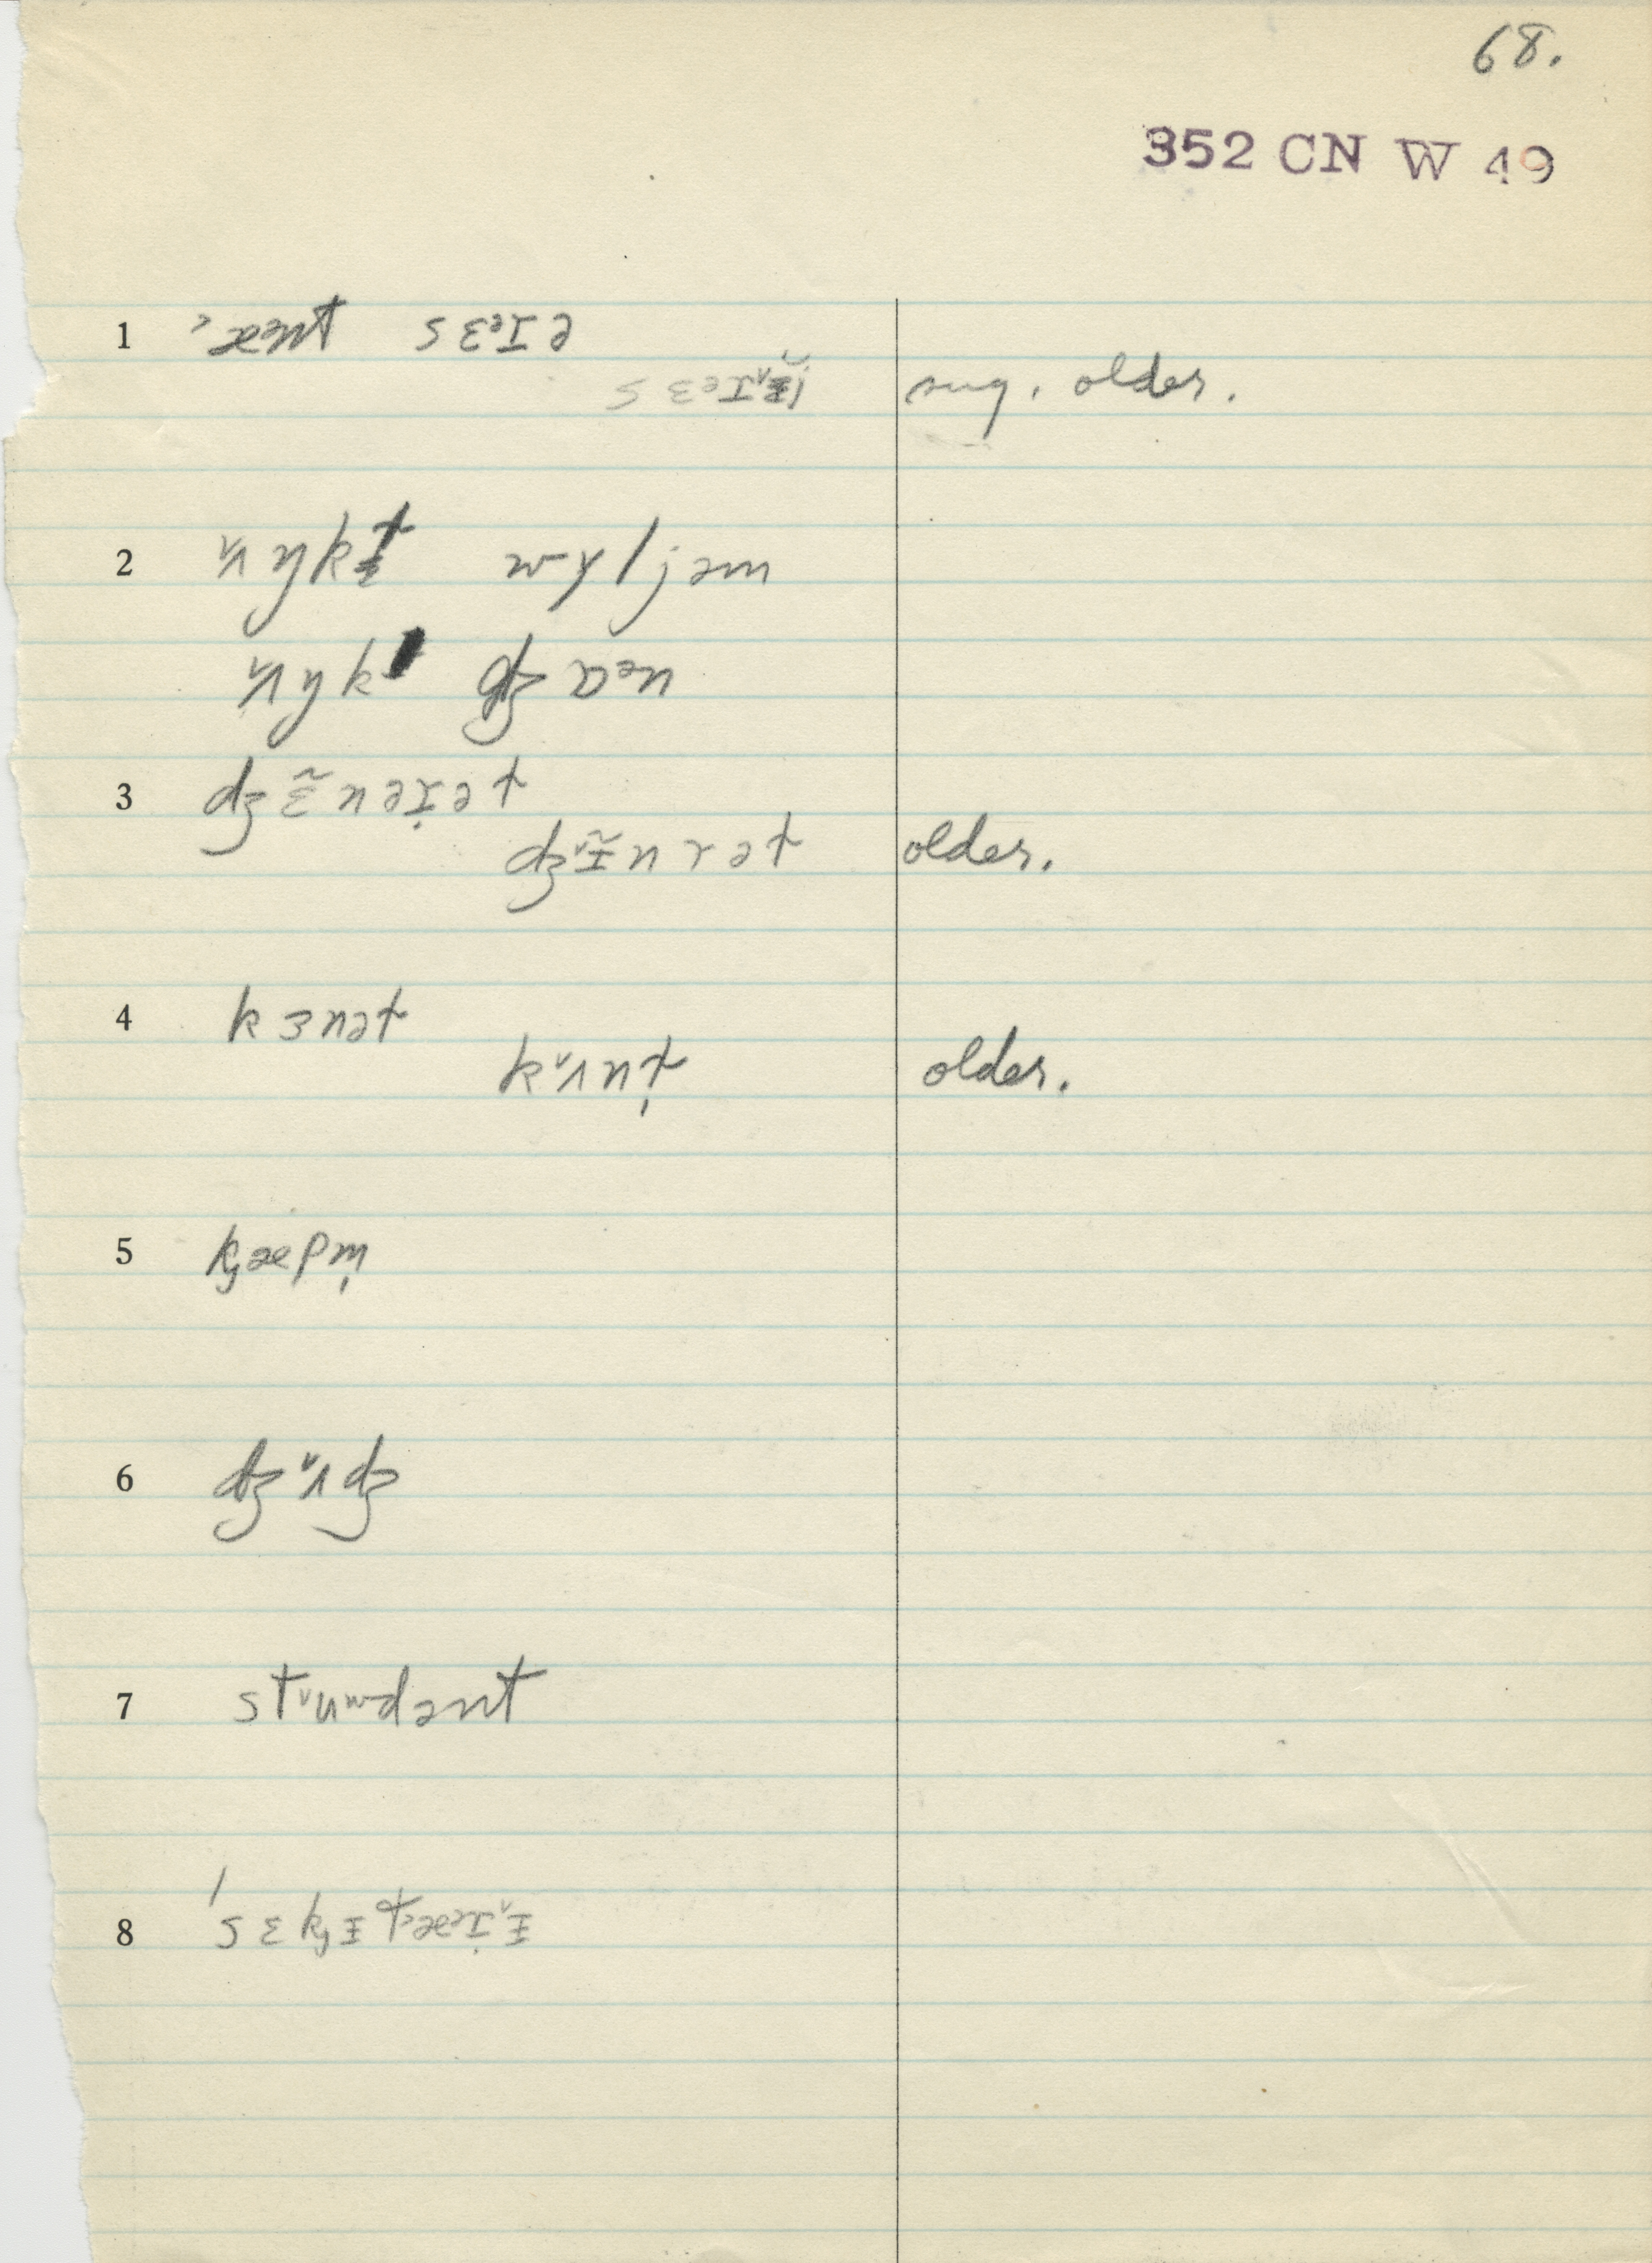 68.
352 CN W 49
1 ˂ænt sɛᵊɪə
sug. older.
2 ʌ˅ŋk wɣljəm
ʌ˅ŋk dʒɒᵊn
3 dʒɛ̃nəɪ̣ət
dʒ˅ɪ̵̃nrət older.
4 kɜnət
k˅ʌnt̩ older.
5 k̡æpm̩
6 dʒ˅ʌdʒ
7 st˅uʷdənt
8 ˈsɛk̡ɪ̵